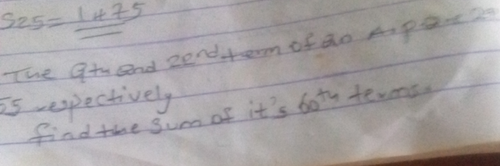 S25= 1475
The 9th and 22nd term of an A.p are 29
55 respectively
find the sum of it's 60th terms.